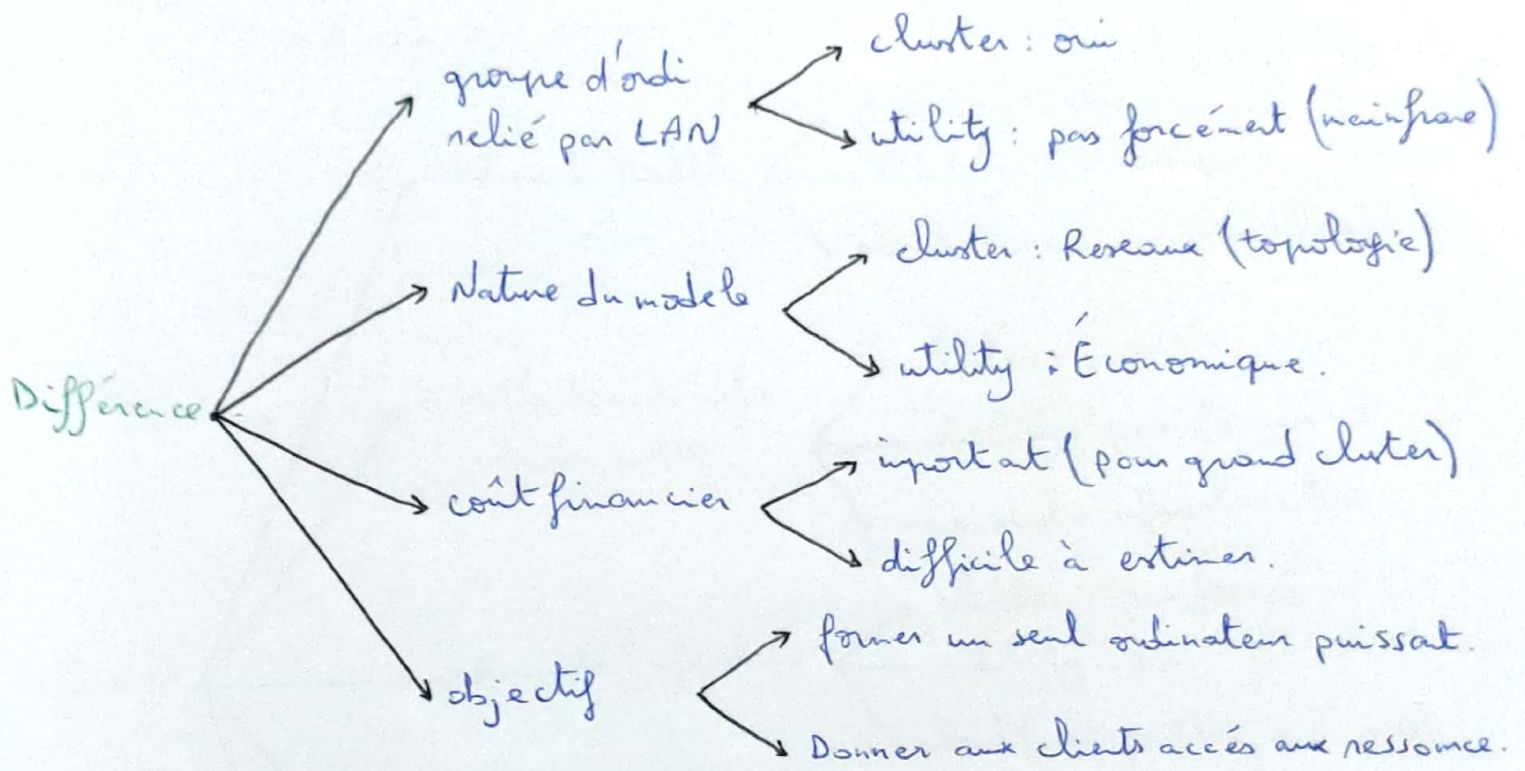 groupe d'ordi
relié par LAN
cluster : oui
utility : pas forcément (mainframe)
Nature du modele
cluster : Reseaux (topologie)
utility : Économique.
Différence
coût financier
important (pour grand cluster)
difficile à estimer.
objectif
former un seul ordinateur puissant.
Donner aux clients accés aux ressource.